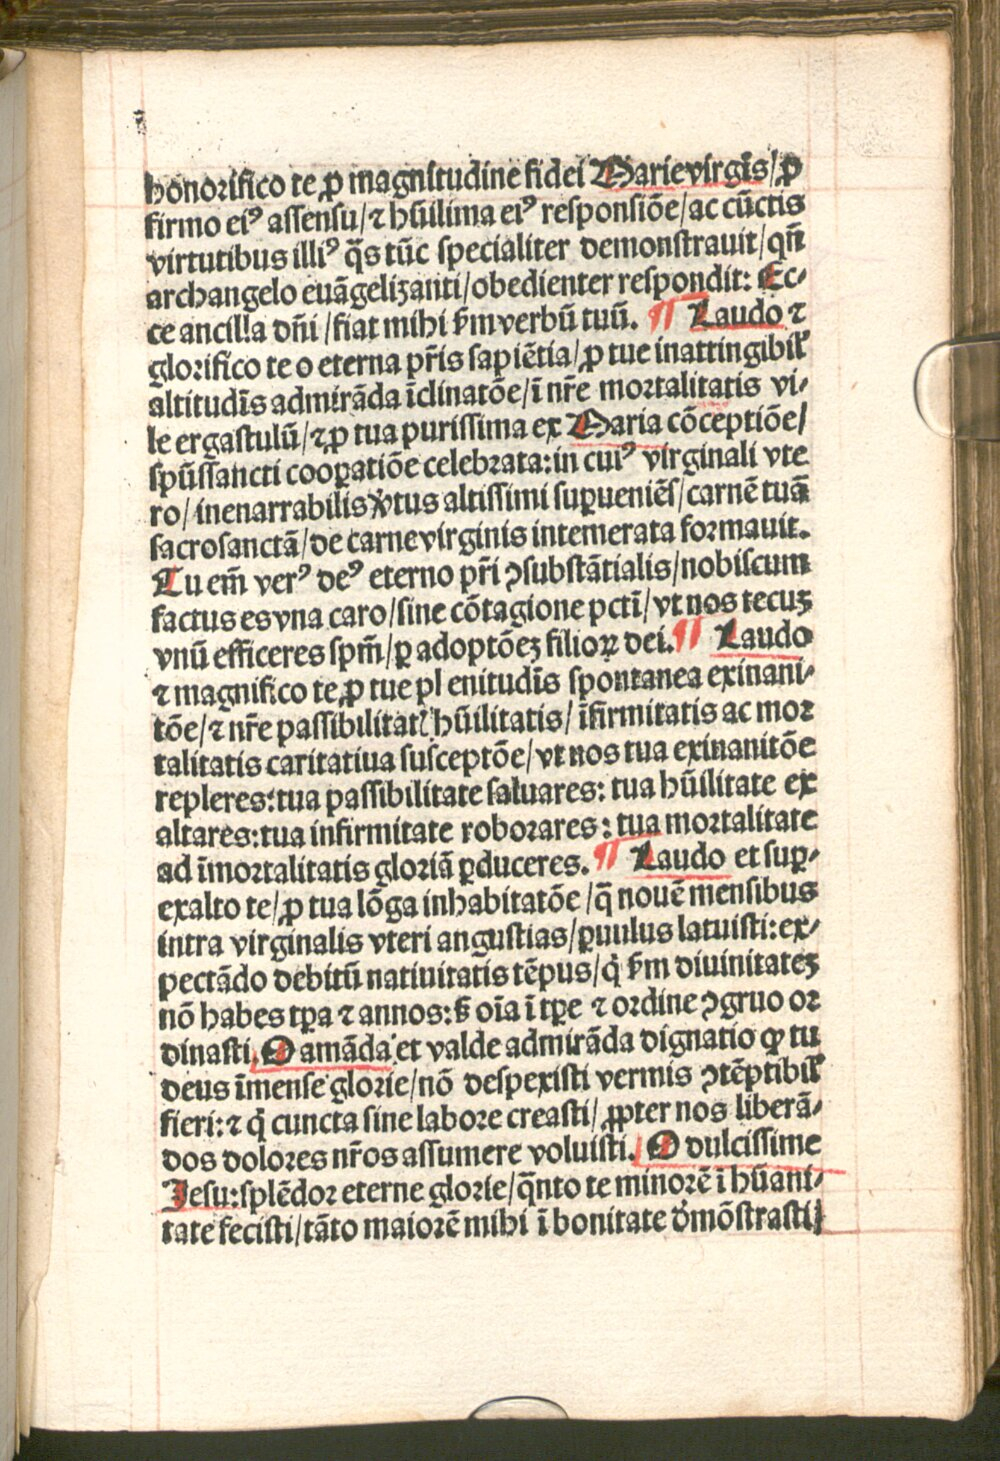 honorifico te ꝓ magnitudine fidei Marie virgĩs/ꝓ
firmo eiꝰ assensu/⁊ hũilima eiꝰ responsiõe/ac cũctis
virtutibus illiꝰ q̃s tũc specialiter demonstrauit/qñ
archangelo euãgelizanti/obedienter respondit: Ec⸗
ce ancilla dñi/fiat mihi ẜm verbũ tuũ. ¶ Laudo ⁊
glorifico te o eterna pr̃is sapiẽtia/ꝓ tue inattingibil̃
altitudĩs admirãda ĩclinatõe/ĩ nr̃e mortalitatis vi⸗
le ergastulũ/⁊ ꝓ tua purissima ex Maria cõceptiõe/
spũssancti cooꝑatiõe celebrata: in cuiꝰ virginali vte
ro/inenarrabilis v̾tus altissimi suꝑueniẽs/carnẽ tuã
sacrosanctã/de carne virginis intemerata formauit.
Tu em̃ verꝰ deꝰ eterno pr̃i ꝯsubstãtialis/nobiscum
factus es vna caro/sine cõtagione pctĩ/vt nos tecuꝫ
vnũ efficeres spm̃/ꝑ adoptõeꝫ filioꝝ dei. ¶ Laudo
⁊ magnifico te ꝓ tue plenitudĩs spontanea exinani⸗
tõe/⁊ nr̃e passibilitatꝭ hũilitatis/ĩfirmitatis ac mor
talitatis caritatiua susceptõe/vt nos tua exinanitõe
repleres: tua passibilitate saluares: tua hũilitate ex
altares: tua infirmitate roborares: tua mortalitate
ad ĩmortalitatis gloriã ꝑduceres. ¶ Laudo et suꝑ⸗
exalto te/ꝓ tua lõga inhabitatõe/q̃ nouẽ mensibus
intra virginalis vteri angustias/ꝑuulus latuisti: ex⸗
pectãdo debitũ natiuitatis tẽpus/q̇ ẜm diuinitateꝫ
nõ habes tꝑa ⁊ annos: ẜ oĩa ĩ tꝑe ⁊ ordine ꝯgruo or
dinasti. O amãda et valde admirãda dignatio ꝙ tu
deus ĩmense glorie/nõ despexisti vermis ꝯtẽptibil̃
fieri: ⁊ q̇ cuncta sine labore creasti/ꝓpter nos liberã⸗
dos dolores nr̃os assumere voluisti. O dulcissime
Jesu: splẽdor eterne glorie/q̃nto te minorẽ ĩ hũani⸗
tate fecisti/tãto maiorẽ mihi ĩ bonitate d̾mõstrasti